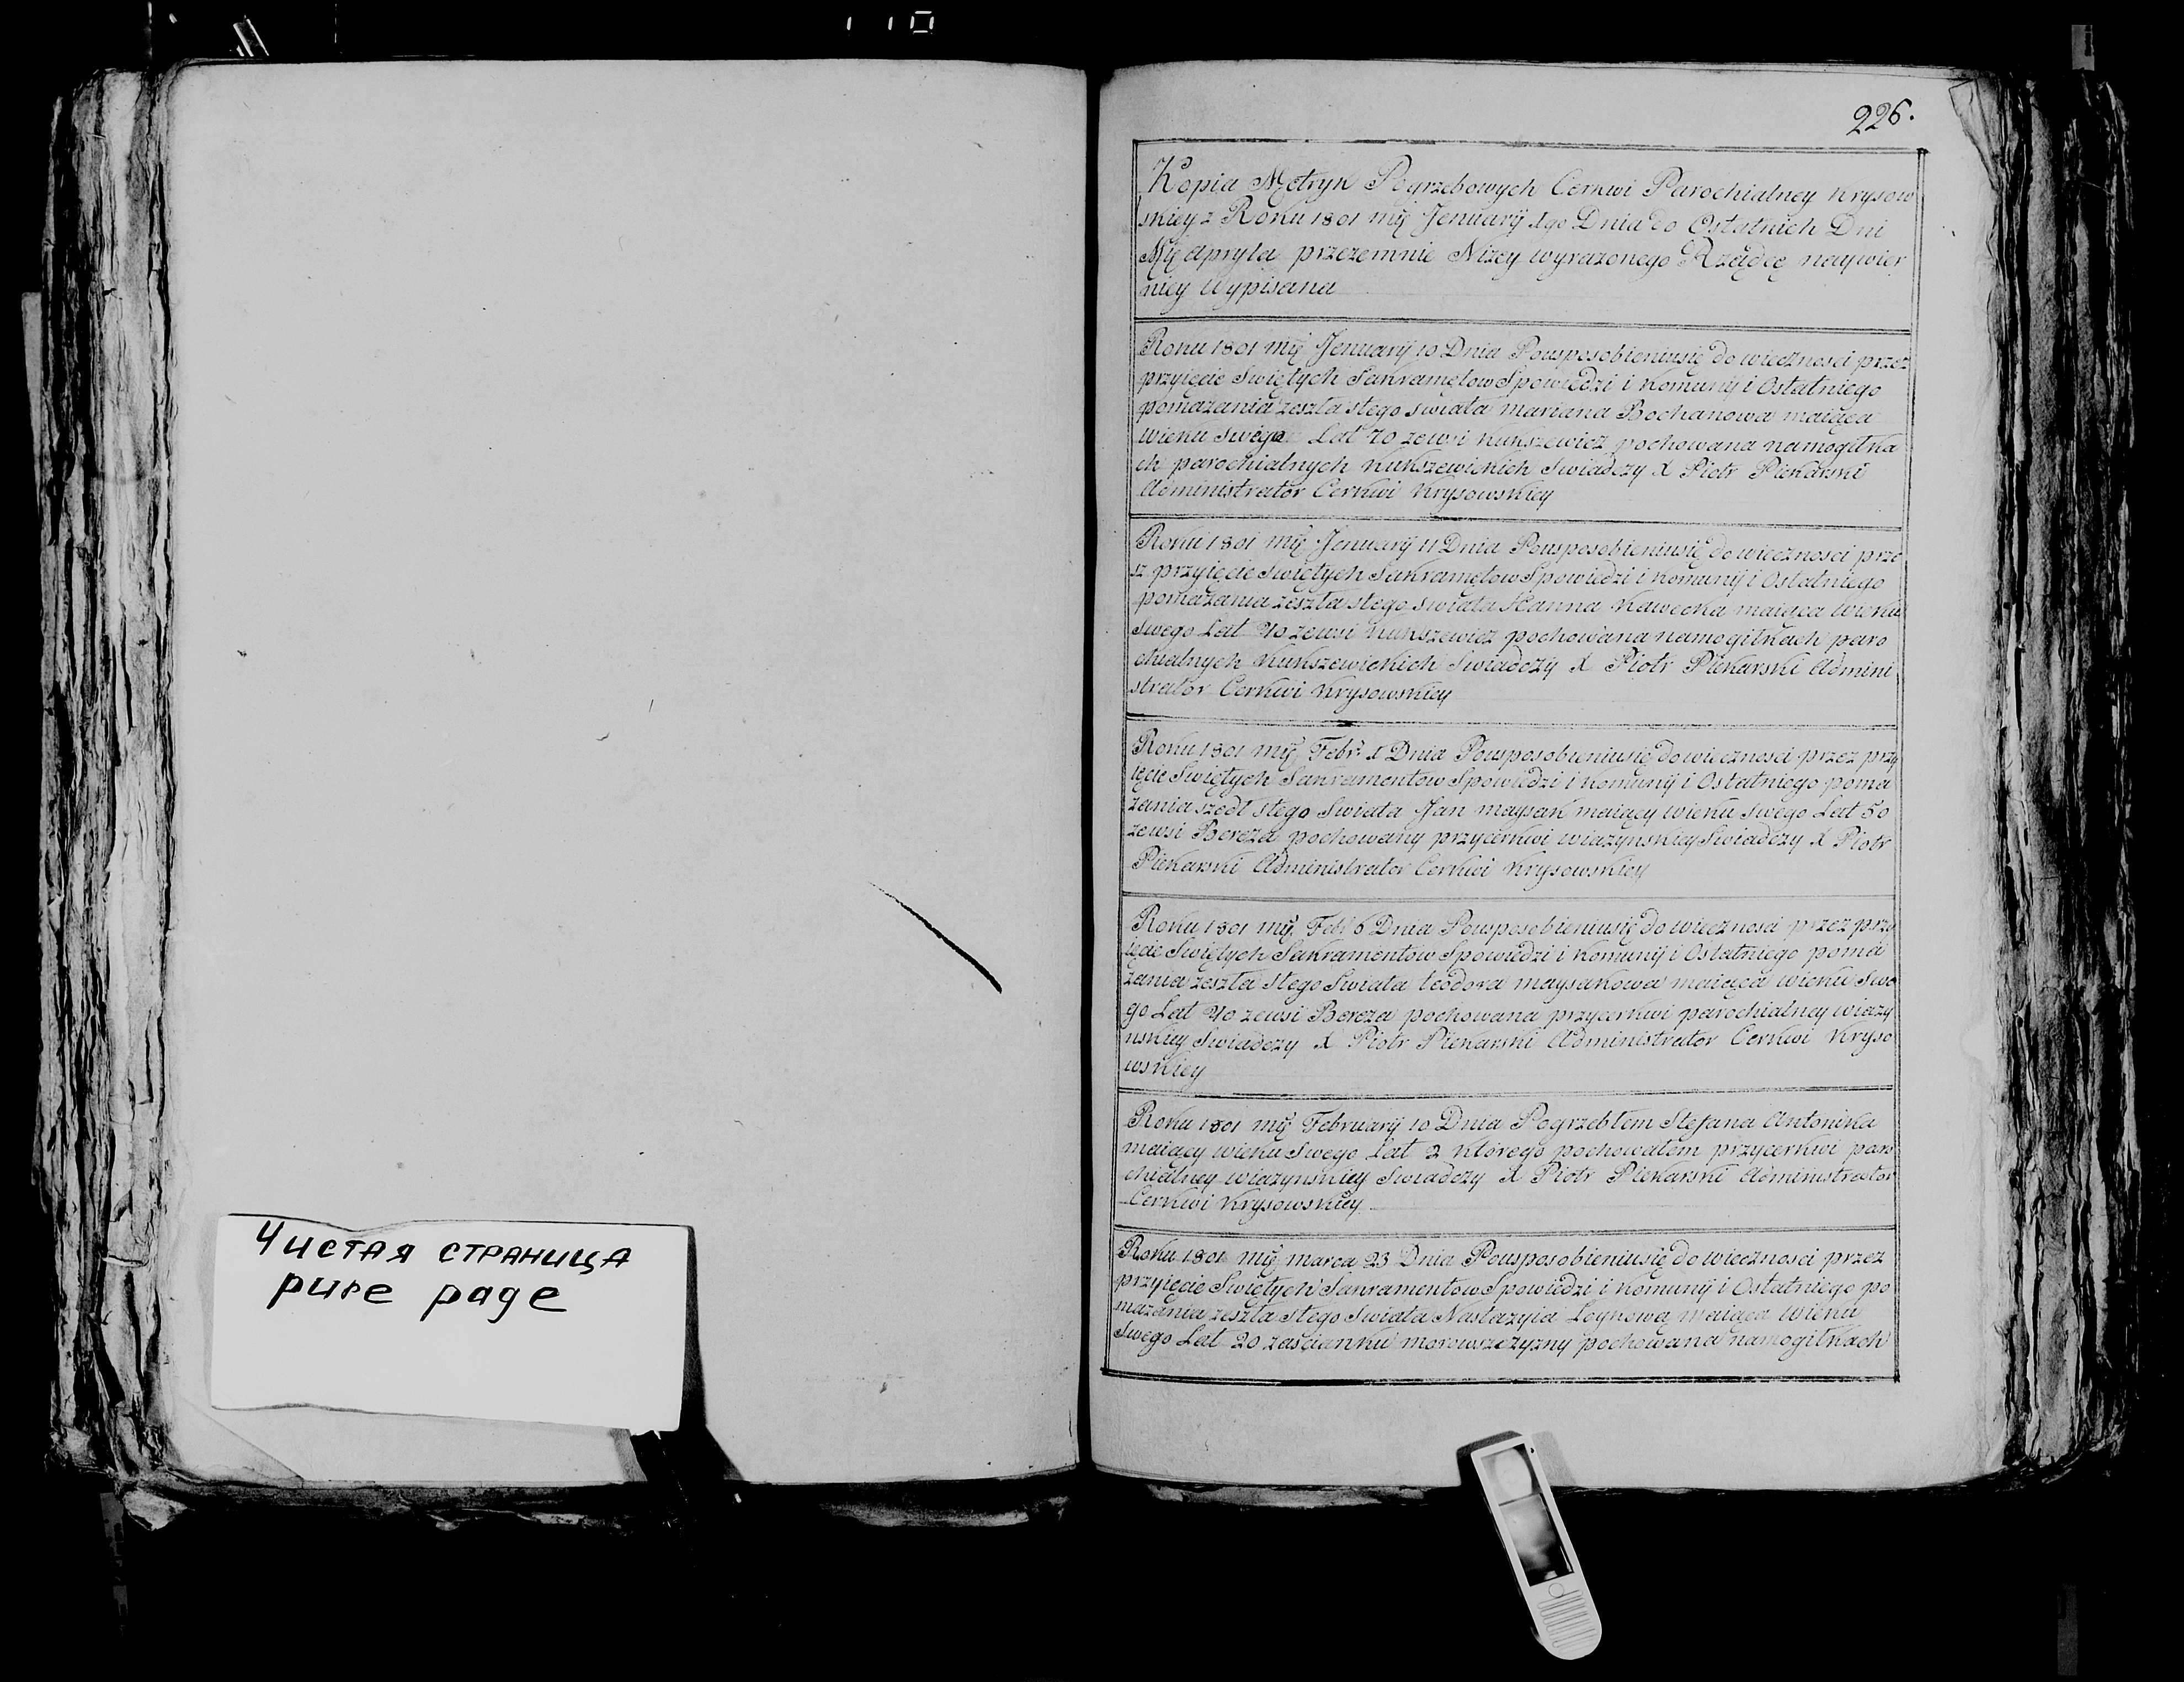 Чистая страница
pure page
226.
Kopia Metryk Pogrzebowych Cerkwi Parochialney Krysow
skiey z Roku 1801 mię Jenuarij 1go Dnia do Ostatnich Dni
Mię Apryla przezemnie Nizey wyrazonego Rządcę naywier
niey Wypisana
Roku 1801 mię Jenuarij 10 Dnia Pousposobieniusię do wiecznosci przez
przyięcie Swiętych Sakramętow Spowiedzi i Komunij i Ostatniego
pomazania zeszła stego swiata mariana Bochanowa maiąca
wieku swego Lat 70 zewsi Kukszewicz pochowana namogiłka
ch parochialnych Kukszewickich Swiadczy X Piotr Piekarski
Administrator Cerkwi Krysowskiey
Roku 1801 mię Jenuarij 11 Dnia Pousposobieniusię do wiecznosci prze
sz przyięcie swiętych Sakramętow Spowiedzi i Komunij i Ostatniego
pomazania zeszła stego swiata Hanna Kawecka maiąca wieku
swego Lat 40 zewsi Kukszewicz pochowana namogiłkach paro
chialnych Kukszewickich Swiadczy X Piotr Piekarski Admini
strator Cerkwi Krysowskiey
Roku 1801 mię Febr: 1 Dnia Pousposobieniusię do wiecznosci przez przy
ięcie Swiętych Sakramentow Spowiedzi i Komunij i Ostatniego poma
zania szedł stego Swiata Jan maysak maiący wieku swego Lat 50
zewsi Bereza pochowany przycerkwi wiazynskiey Swiadczy X Piotr
Piekarski Administrator Cerkwi Krysowskiey
Roku 1801 mię Feb: 6 Dnia Pousposobieniusię do wiecznosci przez przy
ięcie Swiętych Sakramentow Spowiedzi i Komunij i Ostatniego poma
zania zeszła stego Swiata teodora maysakowa maiąca wieku swe
go Lat 40 zewsi Bereza pochowana przycerkwi parochialney wiazy
nskiey Swiadczy X Piotr Piekarski Administrator Cerkwi Kryso
wskiey
Roku 1801 mię Februarij 10 Dnia Pogrzebłem Stefana Antonika
maiący wieku Swego Lat 2 Ktorego pochowałem przycerkwi paro
chialney wiazynskiey Swiadczy X Piotr Piekarski Administrator
Cerkwi Krysowskiey
Roku 1801 mię marca 23 Dnia Pousposobieniusię do wiecznosci przez
przyięcie Swiętych Sakramentow Spowiedzi i Komunij i Ostatniego po
mazania zeszła stego Swiata Nastazyia Loykowa maiąca wieku
Swego Lat 20 zascianku morowszczyzny pochowana namogiłkach